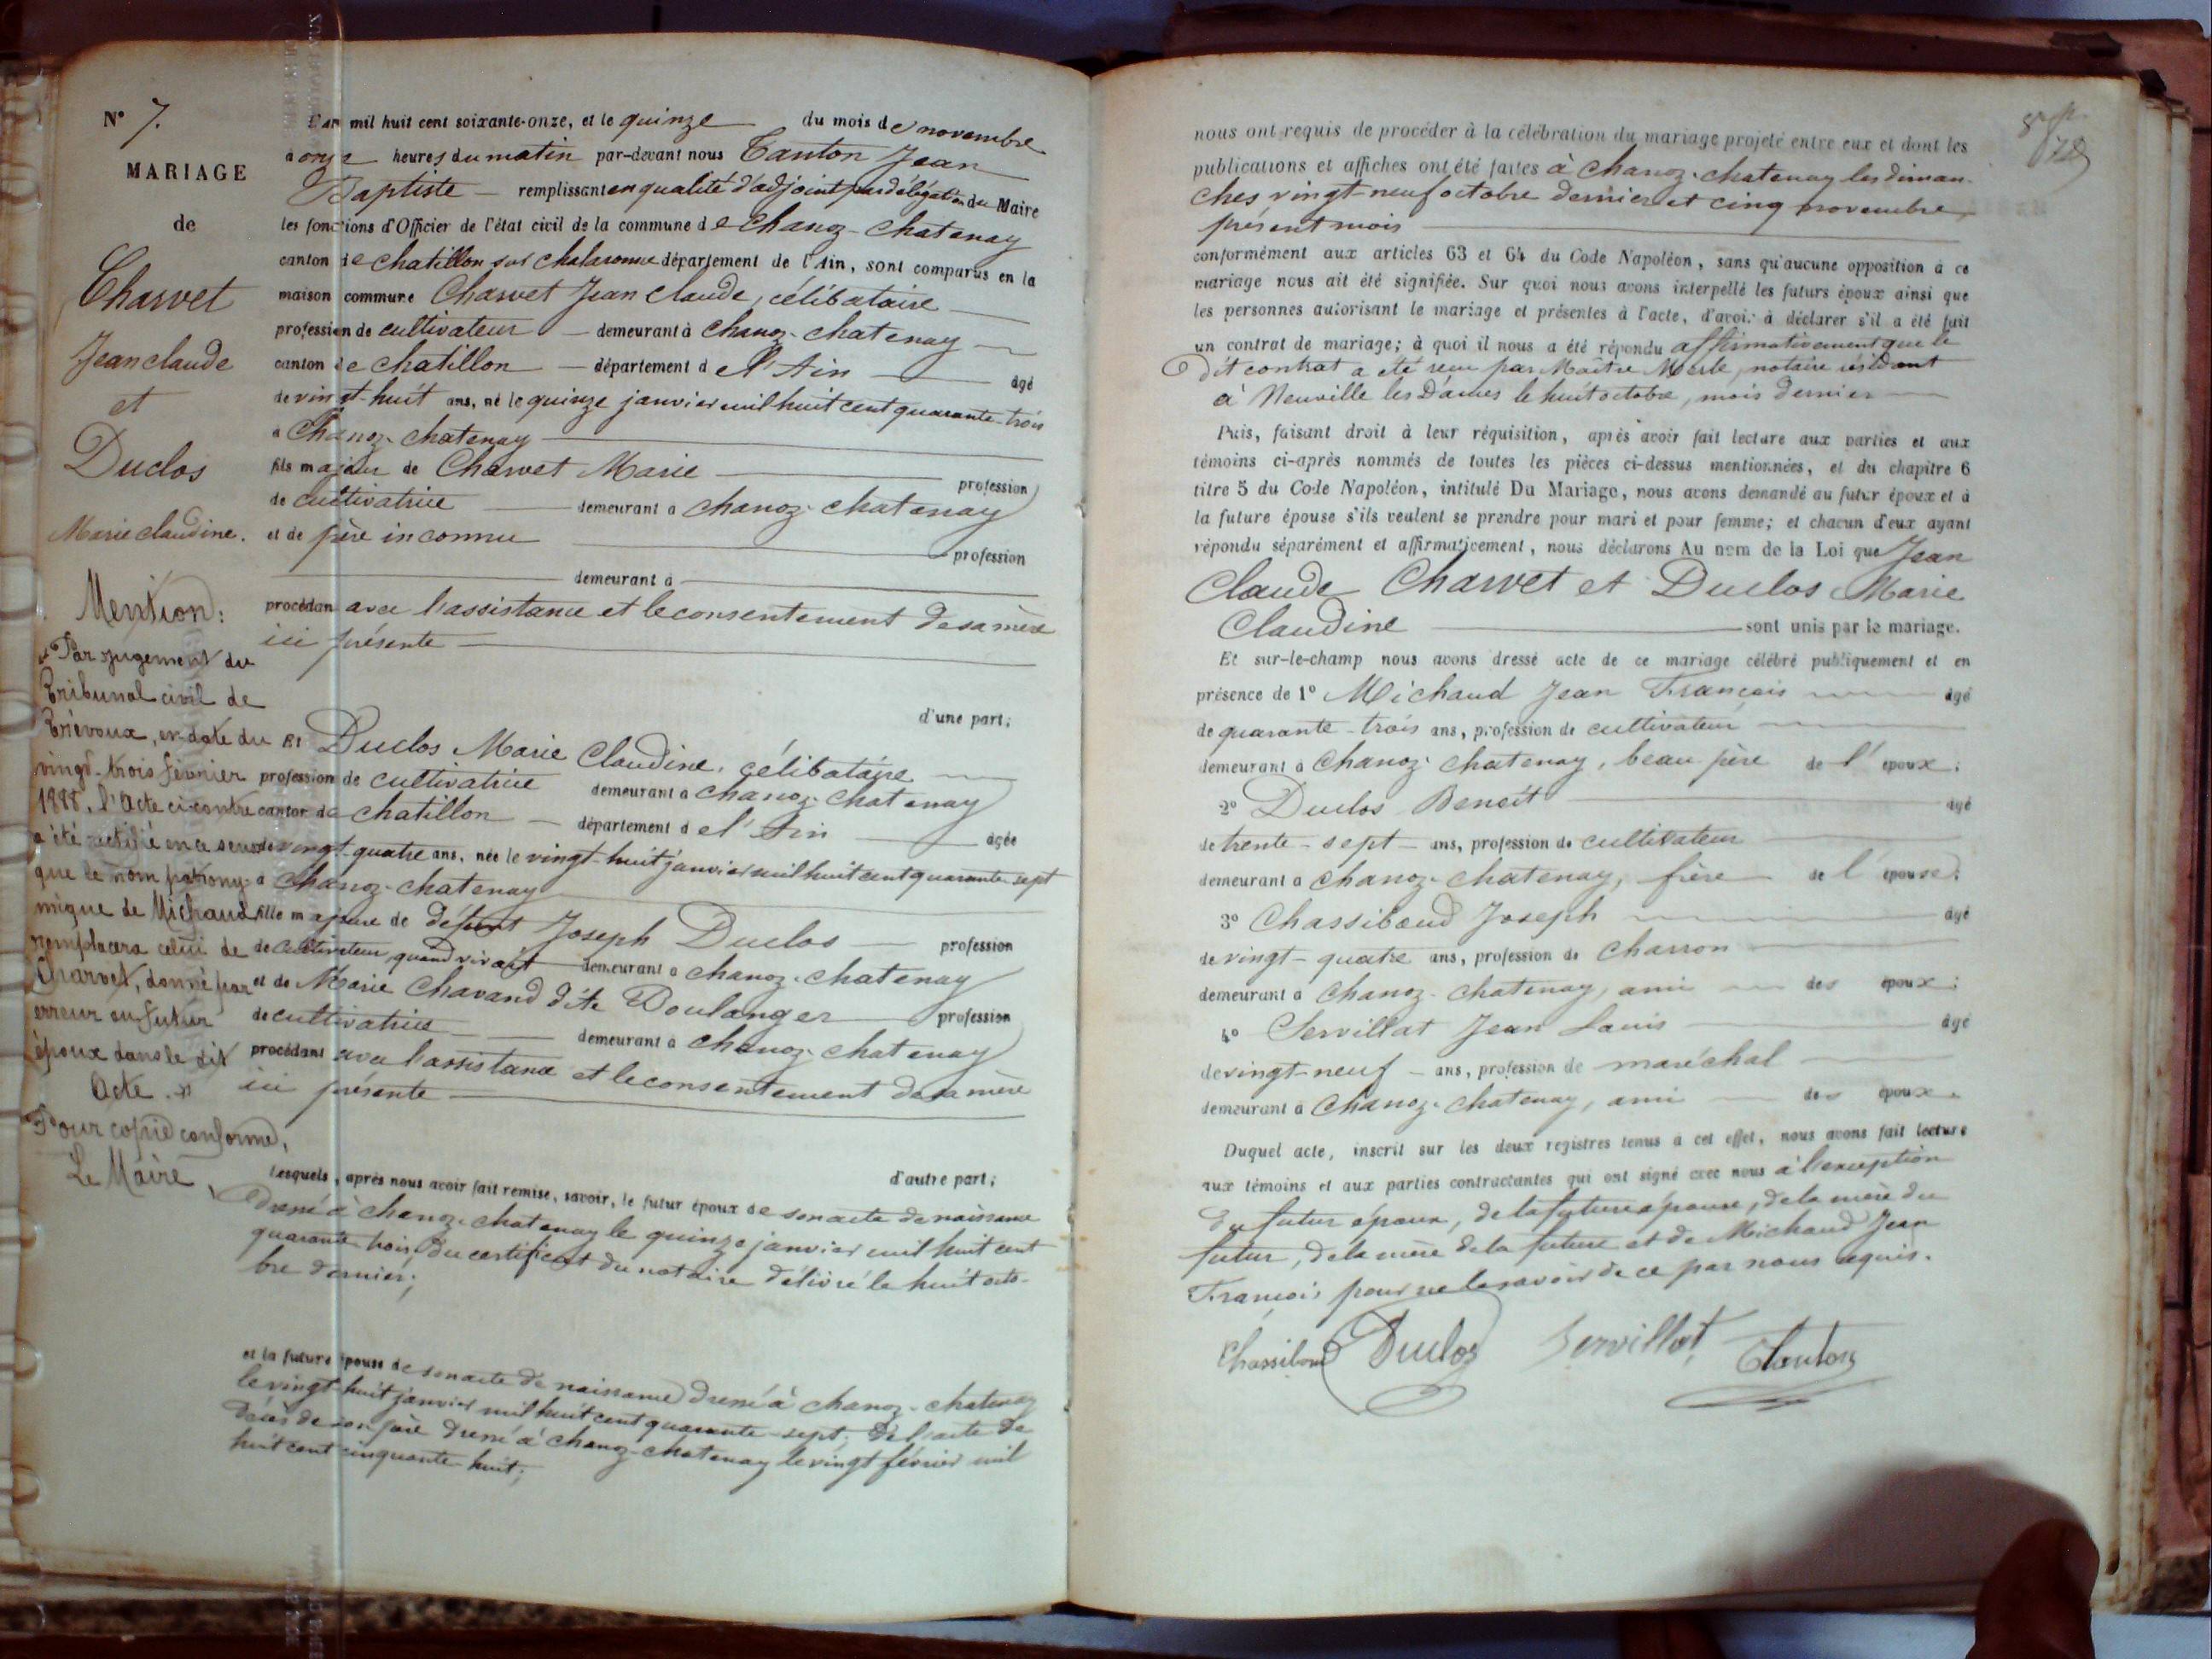 N° 7.
MARIAGE
de
Charvet
Jean claude
et
Duclos
Marie claudine.
Mention:
"Par jugement du
Tribunal civil de
Trévoux, en date du
vingt-trois février
1888, l'Acte ci-contre
a été rectifié en ce sens
que le nom patrony-
mique de Michaud
remplacera celui de
Charvet, donné par
erreur au futur
époux dans le dit
Acte. "
Pour copie conforme,
Le Maire,
L'an mil huit cent soixante-onze, et le quinze du mois de novembre
à onze heures du matin par-devant nous Tanton Jean
Baptiste remplissant en qualité d'adjoint par délégation du Maire
les fonctions d'Officier de l'état civil de la commune de Chanoz-Chatenay
canton de chatillon sur chalaronne département de l'Ain, sont comparus en la
maison commune Charvet Jean Claude, célibataire
profession de cultivateur demeurant à Chanoz-chatenay
canton de chatillon département de l'Ain âgé
de vingt huit ans, né le quinze janvier mil huit cent quarante-trois
à Chanoz-chatenay
fils majeur de Charvet Marie profession
de cultivatrice demeurant à chanoz-chatenay
et de père inconnu profession
demeurant à
procédant avec l'assistance et le consentement de sa mère
ici présente
d'une part;
Et Duclos Marie Claudine, célibataire
profession de cultivatrice demeurant à chanoz-chatenay
canton de chatillon département de l'Ain âgée
de vingt-quatre ans, née le vingt-huit janvier mil huit cent quarante-sept
à Chanoz-chatenay
fille majeure de défunt Joseph Duclos profession
de cultivateur, quand vivait demeurant à chanoz-chatenay
et de Marie Chavand dite Boulanger profession
de cultivatrice demeurant à chanoz-chatenay
procédant avec l'assistance et le consentement de sa mère
ici présente
d'autre part;
Lesquels, après nous avoir fait remise, savoir, le futur époux de son acte de naissance
dressé à chanoz-chatenay le quinze janvier mil huit cent
quarante trois, du certificat du notaire délivré le huit octo-
bre dernier;
et la future épouse de son acte de naissance dressé à chanoz-chatenay
le vingt-huit janvier mil huit cent quarante-sept, de l'acte de
décès de son père dressé à chanoz-chatenay le vingt février mil
huit cent cinquante-huit;
nous ont requis de procéder à la célébration du mariage projeté entre eux et dont les
publications et affiches ont été faites à chanoz-chatenay les diman-
ches vingt-neuf octobre dernier et cinq novembre,
présent mois
conformément aux articles 63 et 64 du Code Napoléon, sans qu'aucune opposition à ce
mariage nous ait été signifiée. Sur quoi nous avons interpellé les futurs époux ainsi que
les personnes autorisant le mariage et présentes à l'acte, d'avoir à déclarer s'il a été fait
un contrat de mariage; à quoi il nous a été répondu affirmativement que le
dit contrat a été reçu par Maître Merle, notaire résidant
à Neuville les Dames le huit octobre, mois dernier
Puis, faisant droit à leur réquisition, après avoir fait lecture aux parties et aux
témoins ci-après nommés de toutes les pièces ci-dessus mentionnées, et du chapitre 6
titre 5 du Code Napoléon, intitulé Du Mariage, nous avons demandé au futur époux et à
la future épouse s'ils veulent se prendre pour mari et pour femme; et chacun d'eux ayant
répondu séparément et affirmativement, nous déclarons Au nom de la Loi que Jean
Claude Charvet et Duclos Marie
Claudine sont unis par le mariage.
Et sur-le-champ nous avons dressé acte de ce mariage célébré publiquement et en
présence de 1° Michaud Jean François âgé
de quarante-trois ans, profession de cultivateur
demeurant à Chanoz-chatenay, beau père de l'époux;
2° Duclos Benoit âgé
de trente-sept ans, profession de cultivateur
demeurant à chanoz-chatenay, frère de l'épouse;
3° Chassiboud Joseph âgé
de vingt-quatre ans, profession de charron
demeurant à chanoz-chatenay, ami des époux;
4° Servillat Jean Louis âgé
de vingt-neuf ans, profession de maréchal
demeurant à chanoz-chatenay, ami des époux.
Duquel acte, inscrit sur les deux registres tenus à cet effet, nous avons fait lecture
aux témoins et aux parties contractantes qui ont signé avec nous à l'exception
du futur époux, de la future épouse, de la mère du
futur, de la mère de la future et de Michaud Jean
François pour ne le savoir de ce par nous requis.
Chassiboud Duclos Servillat Tanton